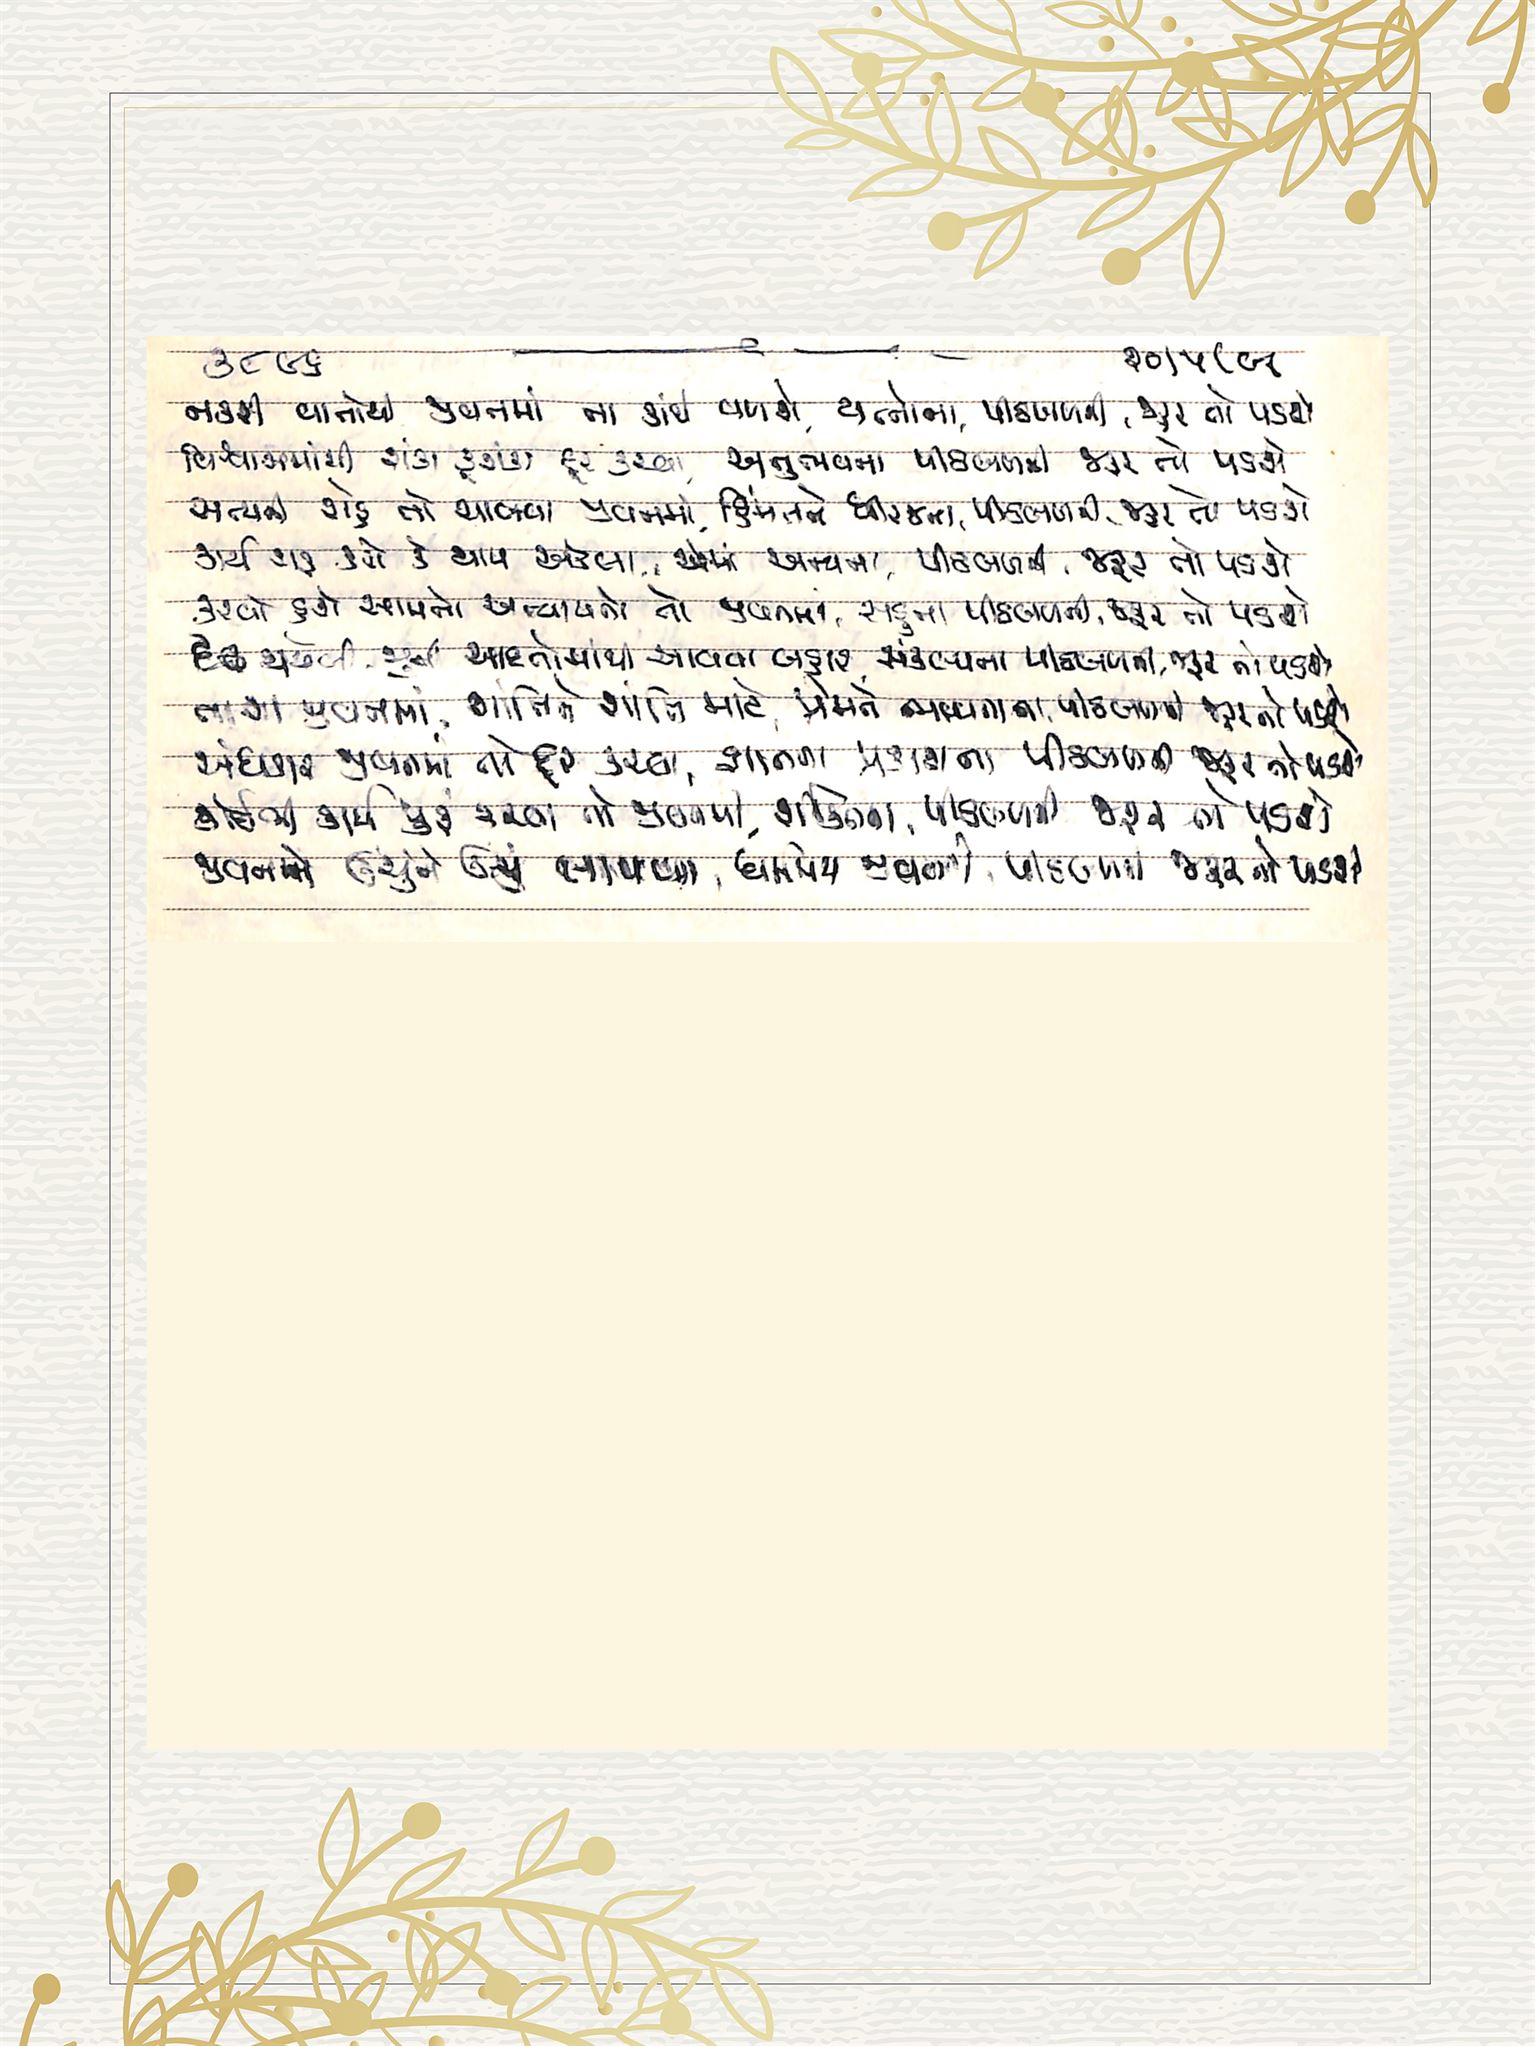 ૩૮૭૬ ૨૦/૫/૮૫
નકરી વાતોથી જીવનમાં ના કાંઈ વળશે, યત્નોના, પીઠબળની, જરૂર તો પડશે
વિશ્વાસમાંથી શંકા કુશંકા દૂર કરવા, અનુભવના પીઠબળની જરૂર તો પડશે
સત્યની રાહે તો ચાલવા જીવનમાં, હિંમતને ધીરજના, પીઠબળની, જરૂર તો પડશે
કાર્ય શરૂ કરો કે થાવ એકલા, એમાં અન્યના, પીઠબળની, જરૂર તો પડશે
કરવો હશે સામનો અન્યાયનો તો જીવનમાં, સહુના પીઠબળની, જરૂર તો પડશે
પડેલી જૂની આદતોમાંથી આવવા બહાર, સંકલ્પના પીઠબળની, જરૂર તો પડશે
જીવનમાં, શાંતિને શાંતિ માટે, પ્રેમને ભવ્યતાના, પીઠબળની જરૂર તો પડશે
અંધકાર જીવનમાં તો દૂર કરવા, જ્ઞાનના પ્રકાશના પીઠબળની જરૂર તો પડશે
કોઈબી કાર્ય પુરું કરવા તો જીવનમાં, શક્તિના, પીઠબળની જરૂર તો પડશે
જીવનને ઉચુંને ઉચું, જીવનની, પીઠબળની જરૂર તો પડશે